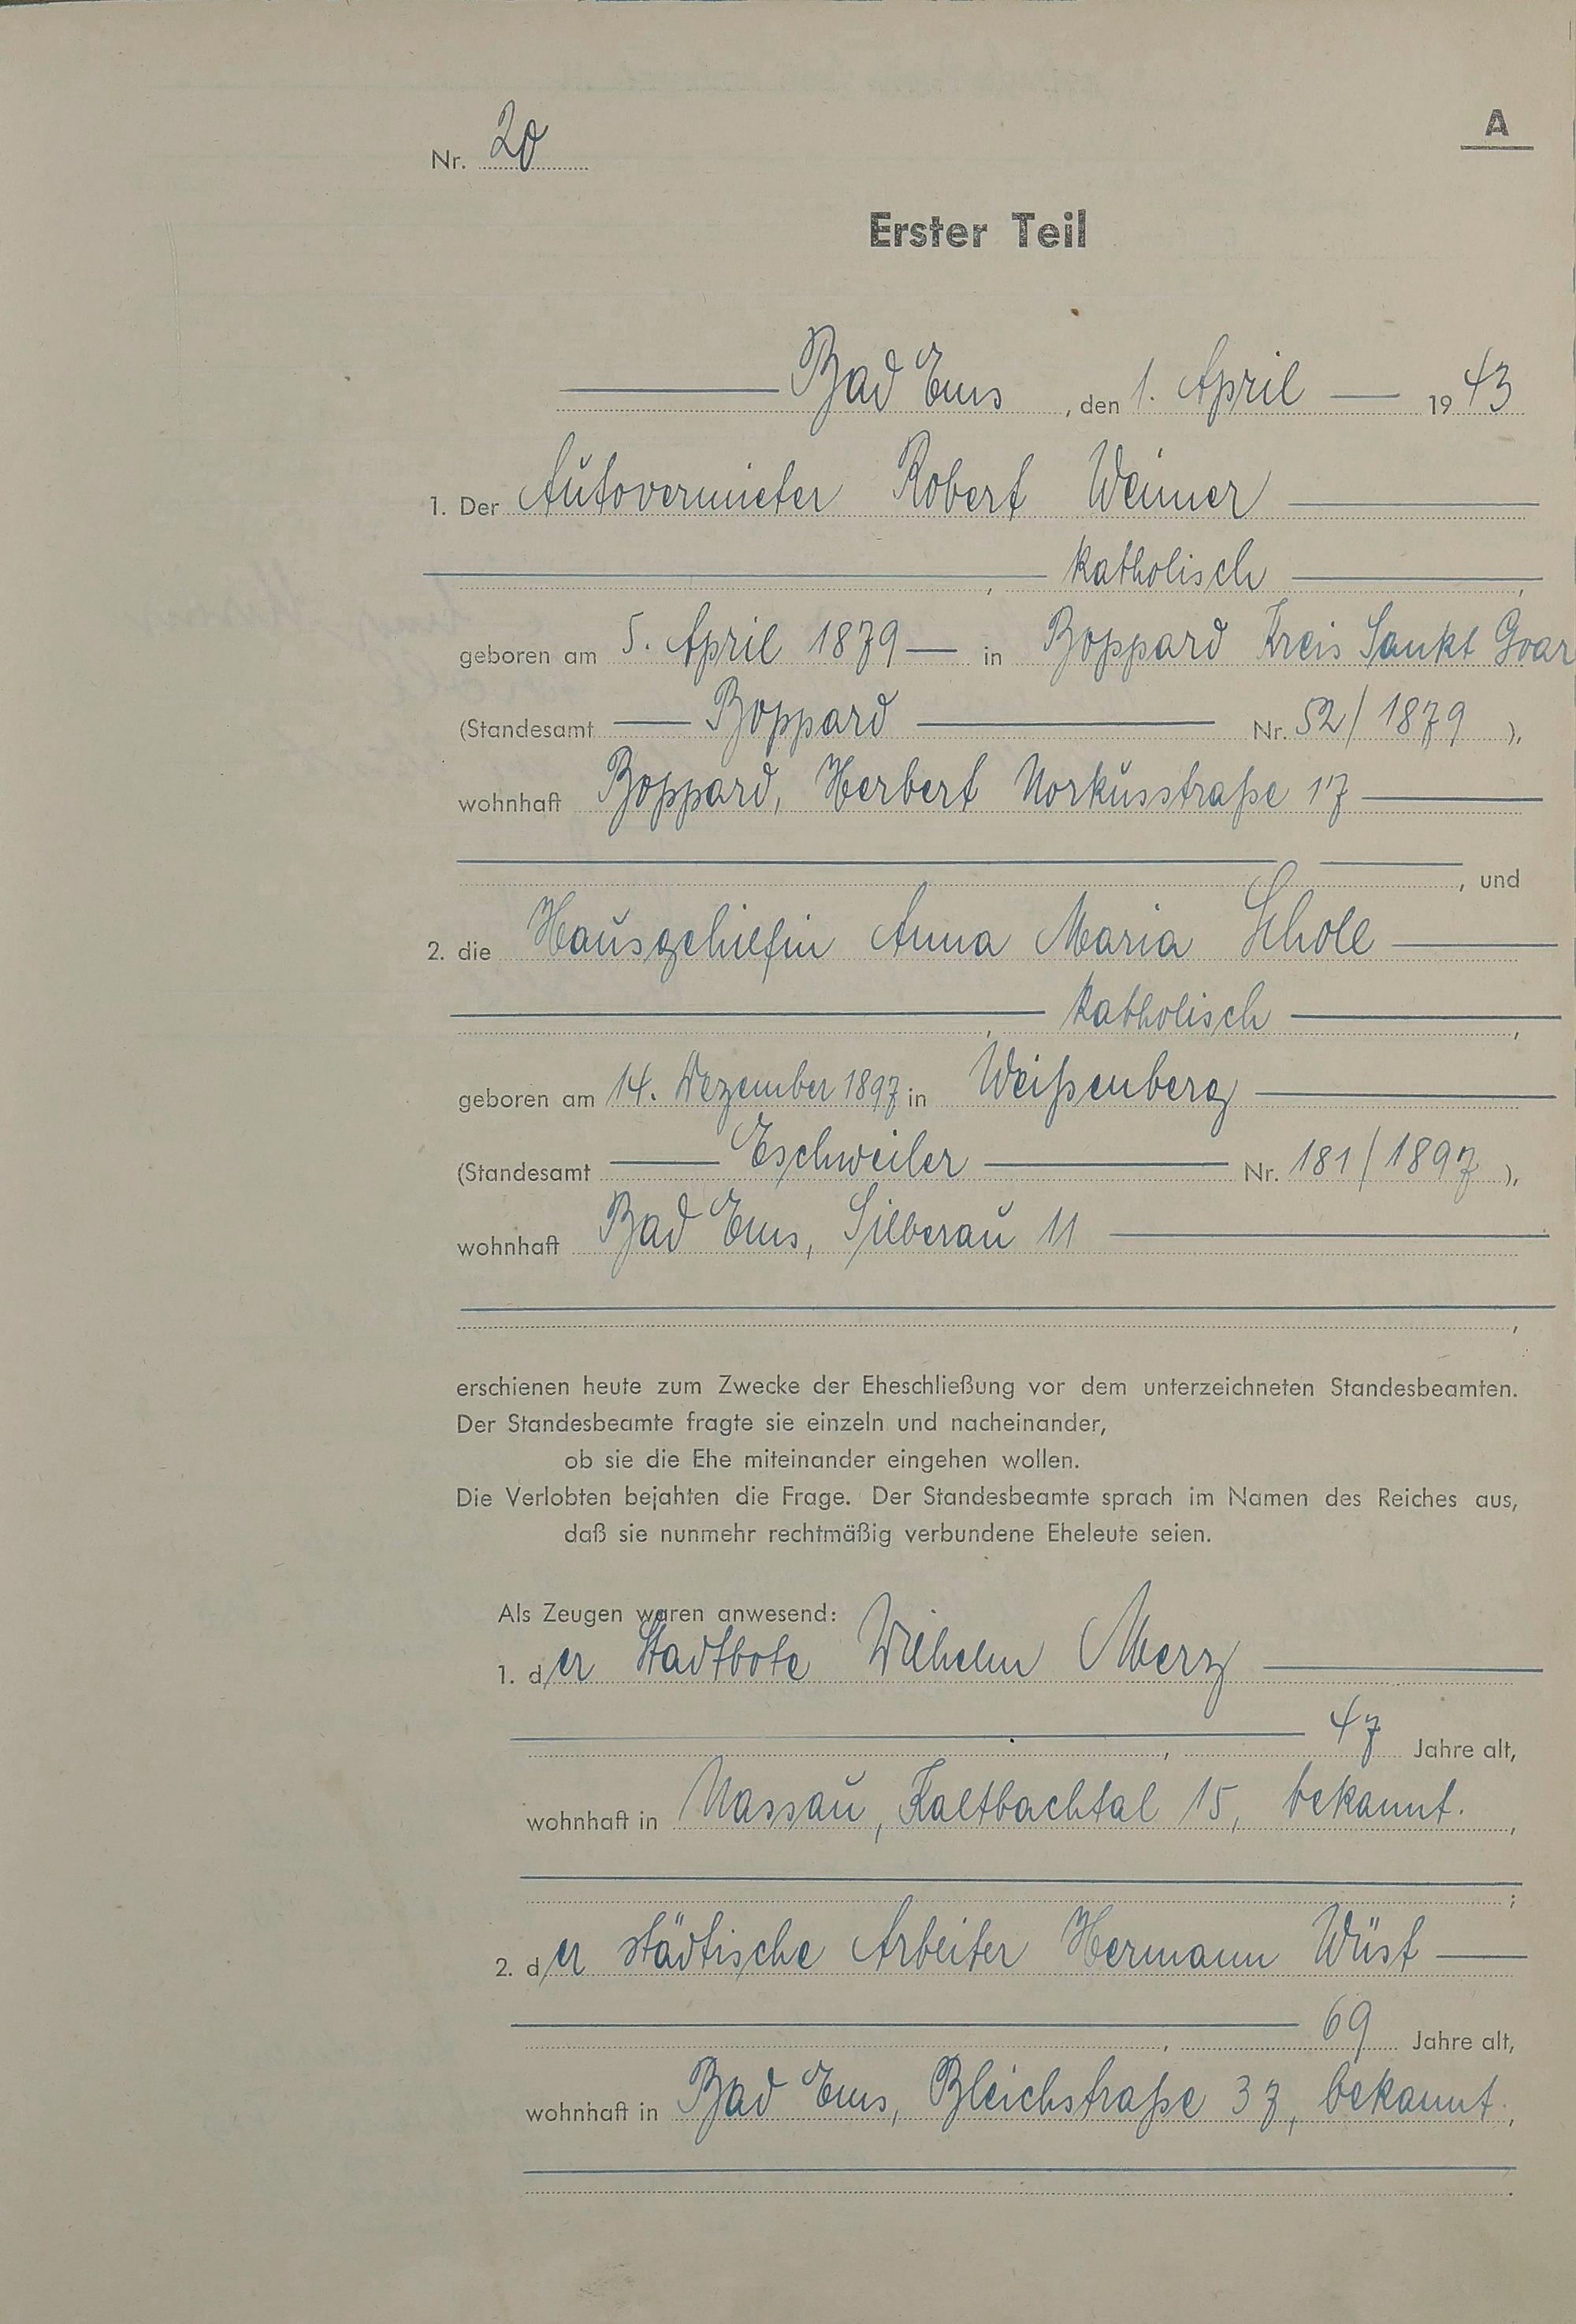 Nr. 20
A
Erster Teil
Bad Ems, den 1. April 1943
1. Der Autovermieter Robert Weimer
, katholisch,
geboren am 5. April 1879 in Boppard Kreis Sankt Goar
(Standesamt Boppard Nr. 52/1879),
wohnhaft Boppard, Herbert Norkusstraße 17
, und
2. die Hausgehilfin Anna Maria Scholl
, katholisch,
geboren am 14. Dezember 1897 in Weißenberg
(Standesamt Eschweiler Nr. 181/1897),
wohnhaft Bad Ems, Silberau 11
,
erschienen heute zum Zwecke der Eheschließung vor dem unterzeichneten Standesbeamten.
Der Standesbeamte fragte sie einzeln und nacheinander,
ob sie die Ehe miteinander eingehen wollen.
Die Verlobten bejahten die Frage. Der Standesbeamte sprach im Namen des Reiches aus,
daß sie nunmehr rechtmäßig verbundene Eheleute seien.
Als Zeugen waren anwesend:
1. der Stadtbote Wilhelm Merz
, 47 Jahre alt,
wohnhaft in Nassau, Kaltbachtal 15, bekannt.,
;
2. der städtische Arbeiter Hermann Wüst
, 69 Jahre alt,
wohnhaft in Bad Ems, Bleichstraße 37, bekannt.,
.